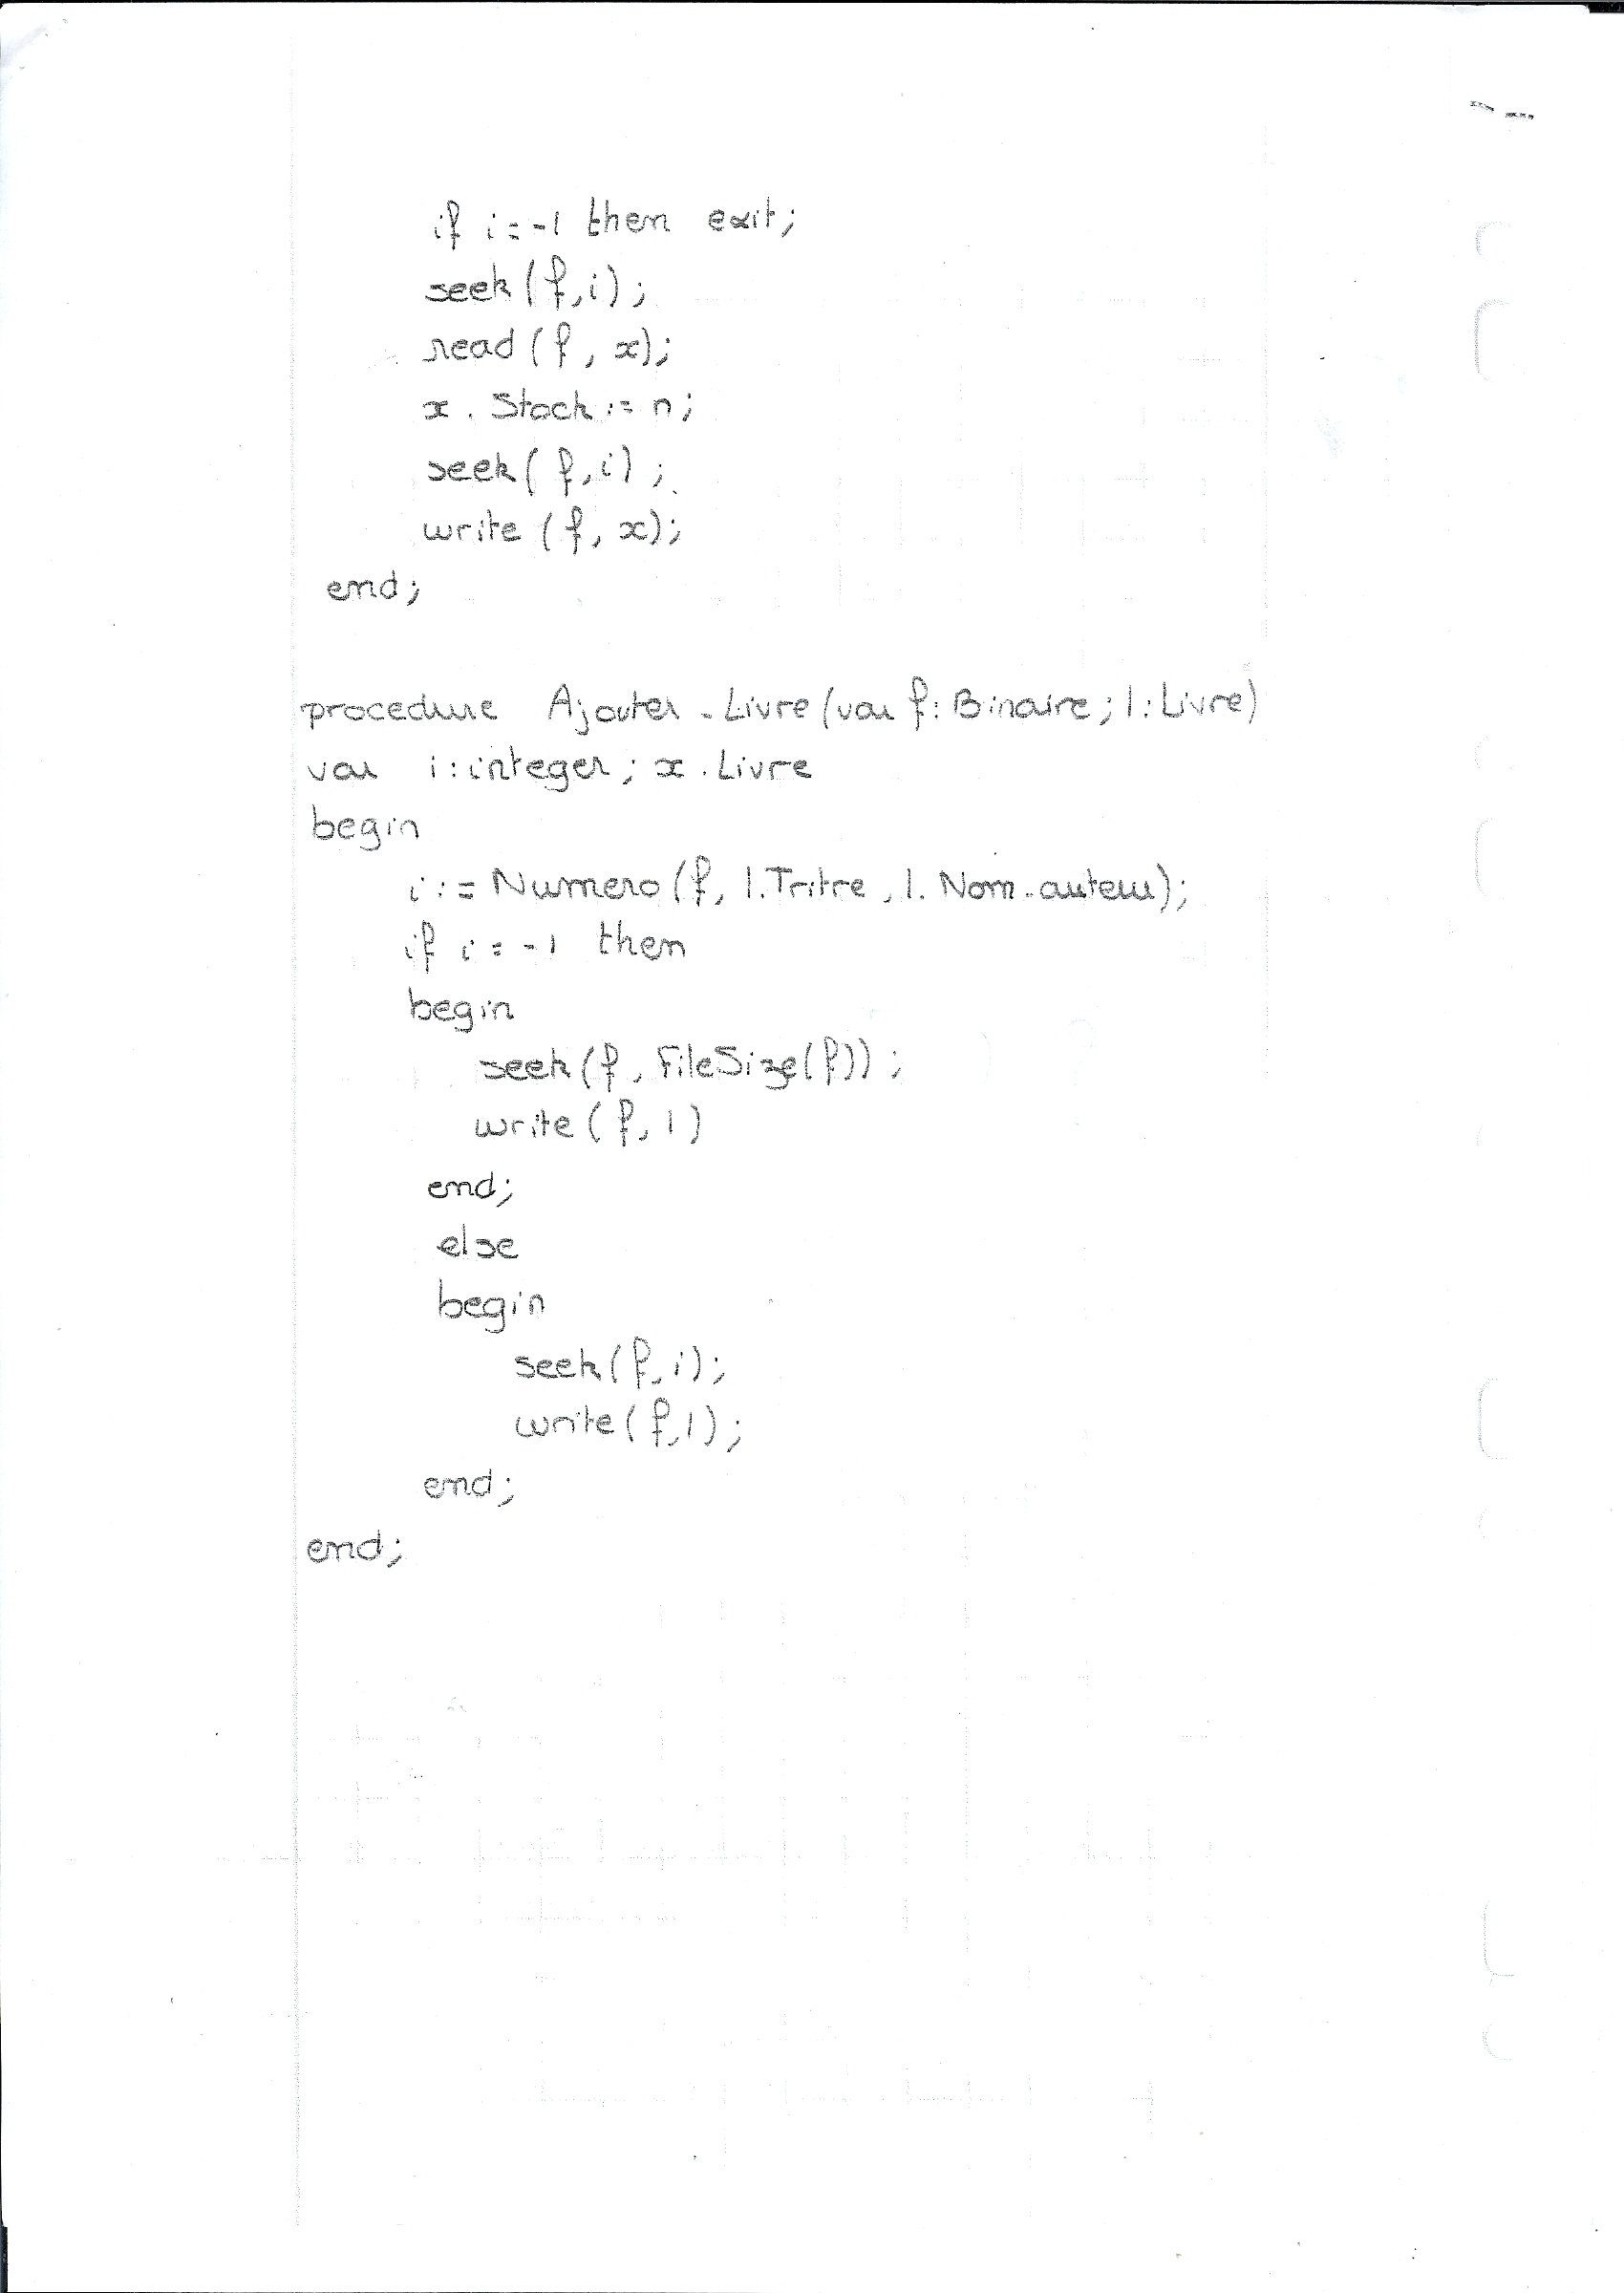 if i=-1 then exit;
seek(f,i);
read(f, x);
x.Stock:=n;
seek(f,i);
write(f, x);
end;
procedure Ajouter_Livre(var f:Binaire; l:Livre)
var i:integer; x.Livre
begin
i:=Numero(f, l.Tritre, l.Nom_auteur);
if i=-1 then
begin
seek(f, FileSize(f));
write(f, l)
end;
else
begin
seek(f,i);
write(f,l);
end;
end;